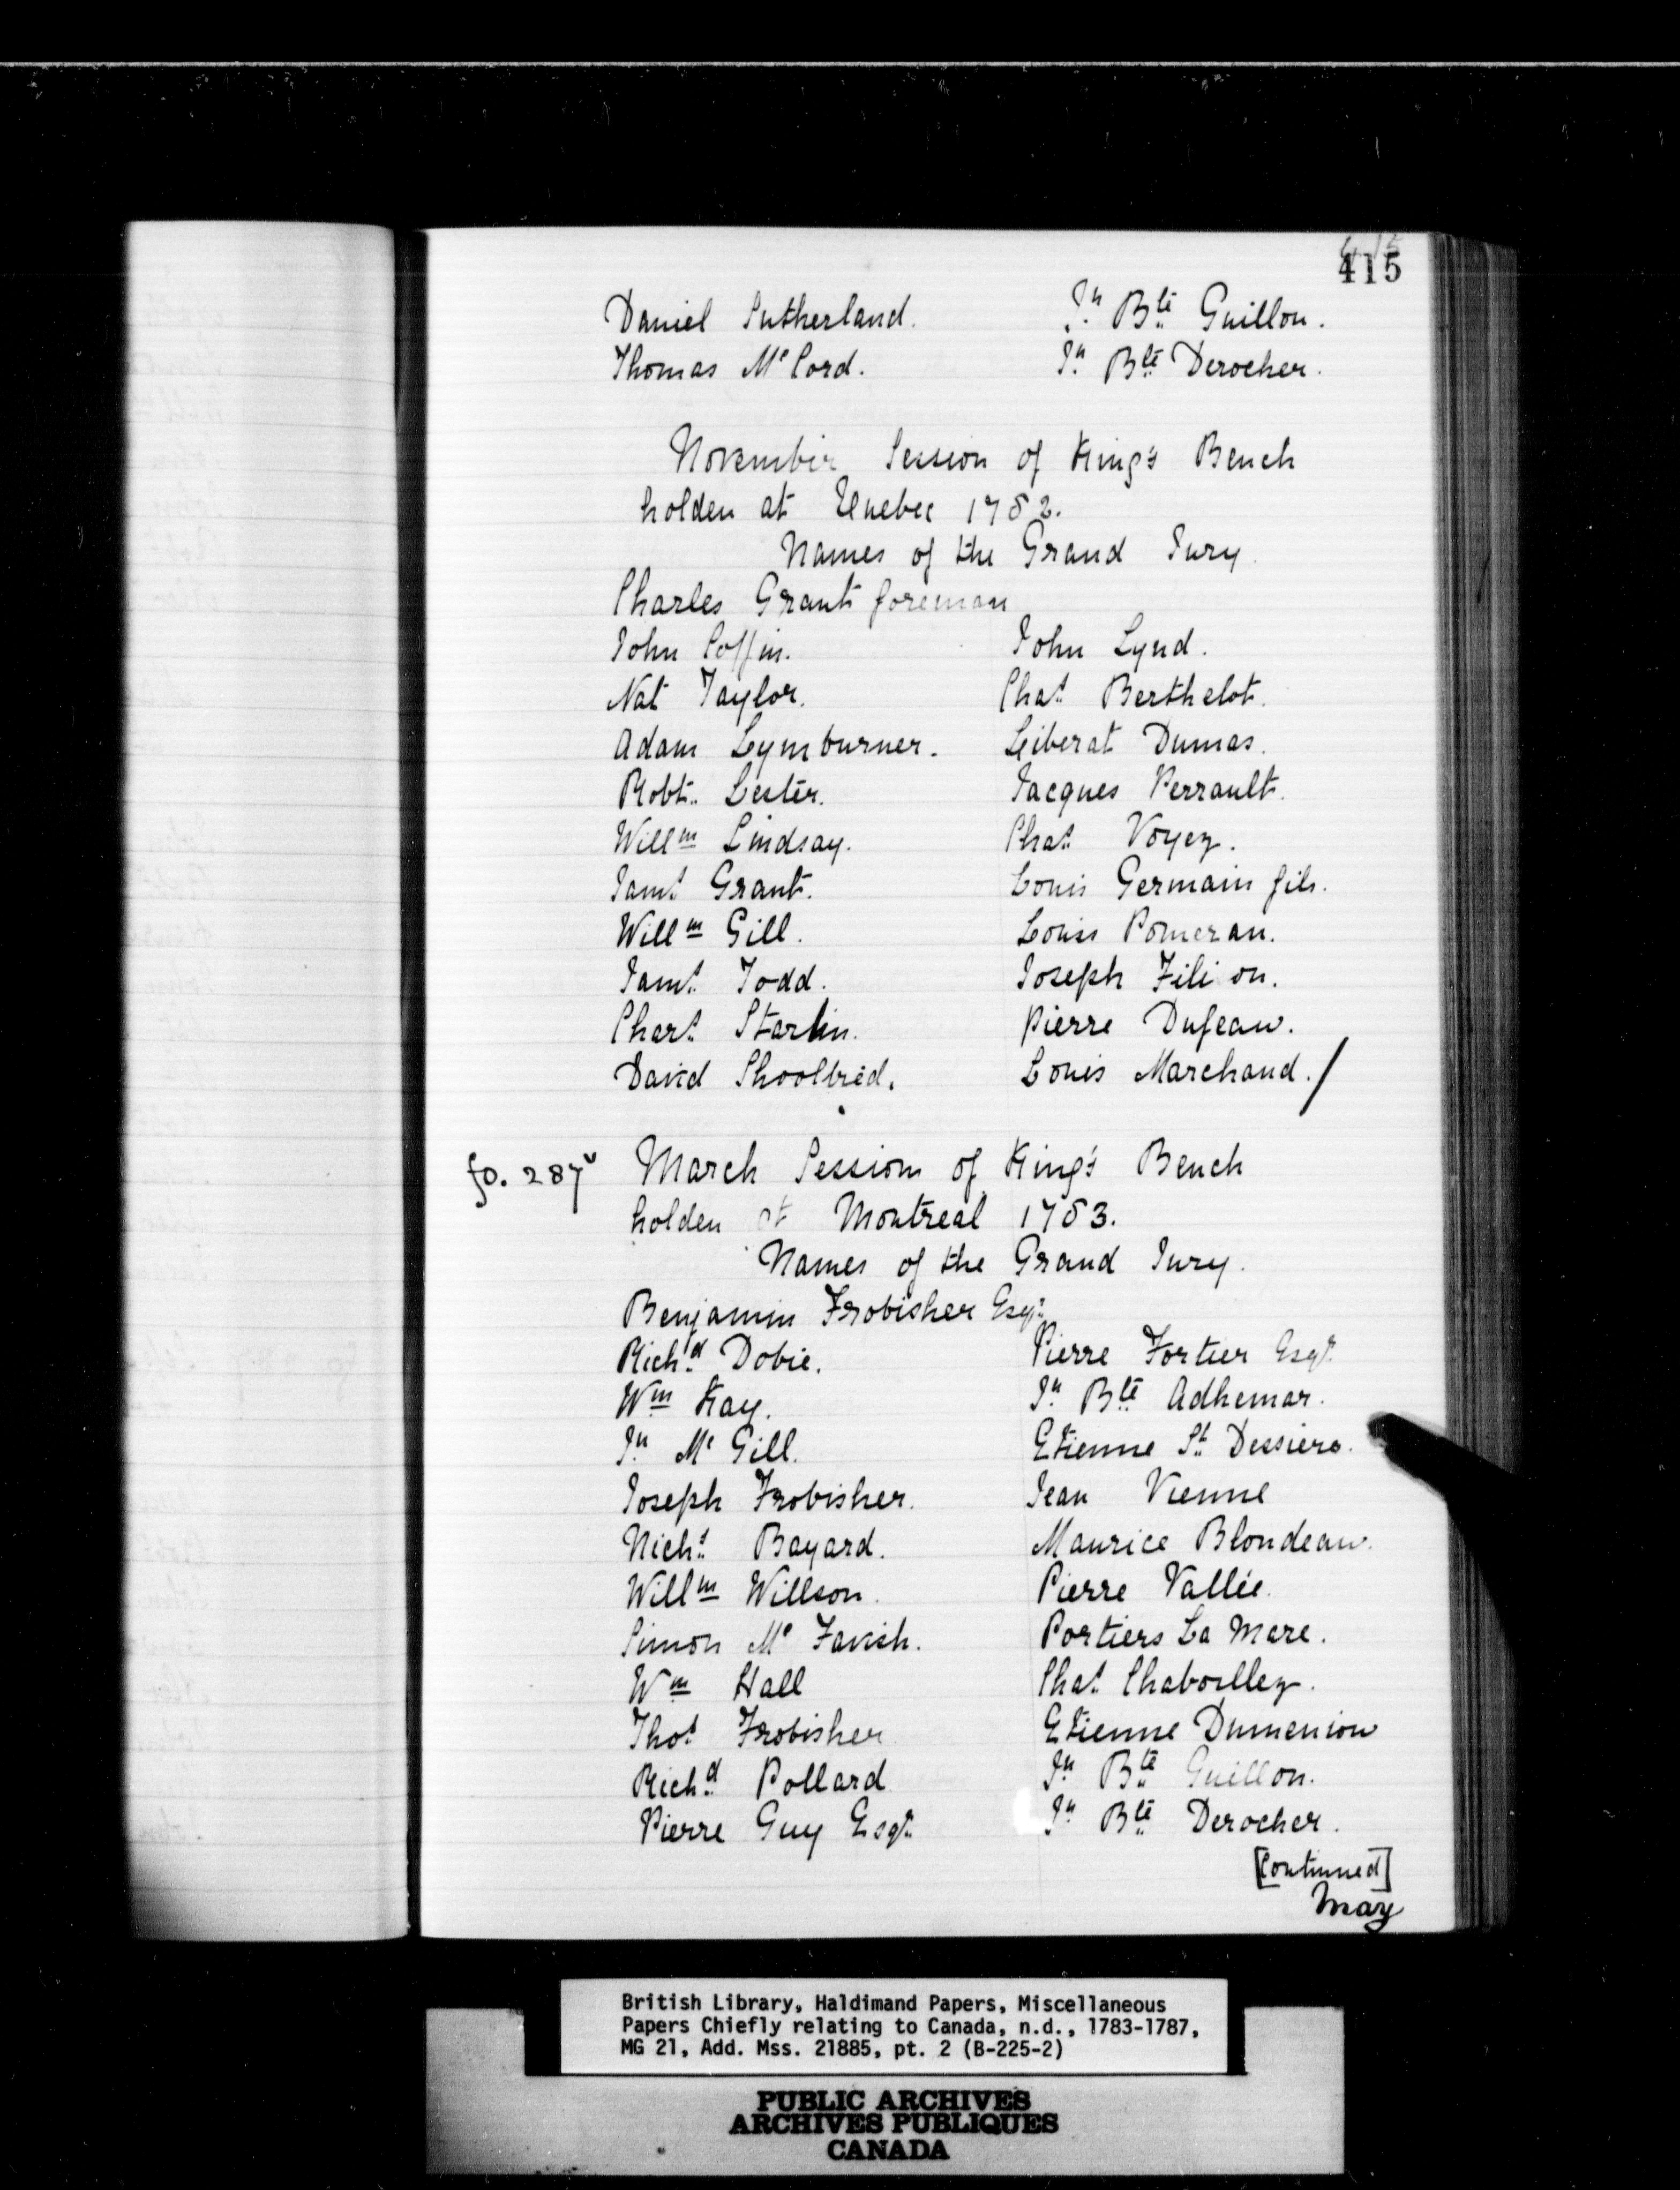 415
415
Daniel Sutherland. Jn Bte Guillon.
Thomas Mc Cord. Jn Bte Derocher.
November Session of King's Bench
holden at Quebec 1782.
Names of the Grand Jury.
Charles Grant foreman
John Coffin. John Lynd.
Nat Taylor. Chas Berthelot.
Adam Lymburner. Leiberat Dumas.
Robt. Lester. Jacques Perrault.
Willm Lindsay. Chas Voyez.
Jams Grant. Louis Germain fils.
Willm Gill. Louis Pomeran.
Jams Todd. Joseph Filion.
Chars Starlin. Pierre Dufeau.
David Shoolbred. Louis Marchand./
fo. 287v March Session of King's Bench
holden at Montreal 1783.
Names of the Grand Jury.
Benjamin Frobisher Esqr
Richd Dobie. Pierre Fortier Esqr
Wm Kay. Jn Bte Adhemar.
Jn Mc Gill. Etienne St Dessiere.
Joseph Frobisher. Jean Vienne
Nichs Bayard. Maurice Blondeau.
Willm Willson. Pierre Vallée.
Simon Mc Tavish. Portiers La Mare.
Wm Hall Chas Chaboillez.
Thos Frobisher Etienne Dumenion
Richd Pollard Jn Bte Guillon.
Pierre Guy Esqr Jn Bte Derocher.
[continued]
May
British Library, Haldimand Papers, Miscellaneous
Papers Chiefly relating to Canada, n.d., 1783-1787,
MG 21, Add. Mss. 21885, pt. 2 (B-225-2)
PUBLIC ARCHIVES
ARCHIVES PUBLIQUES
CANADA